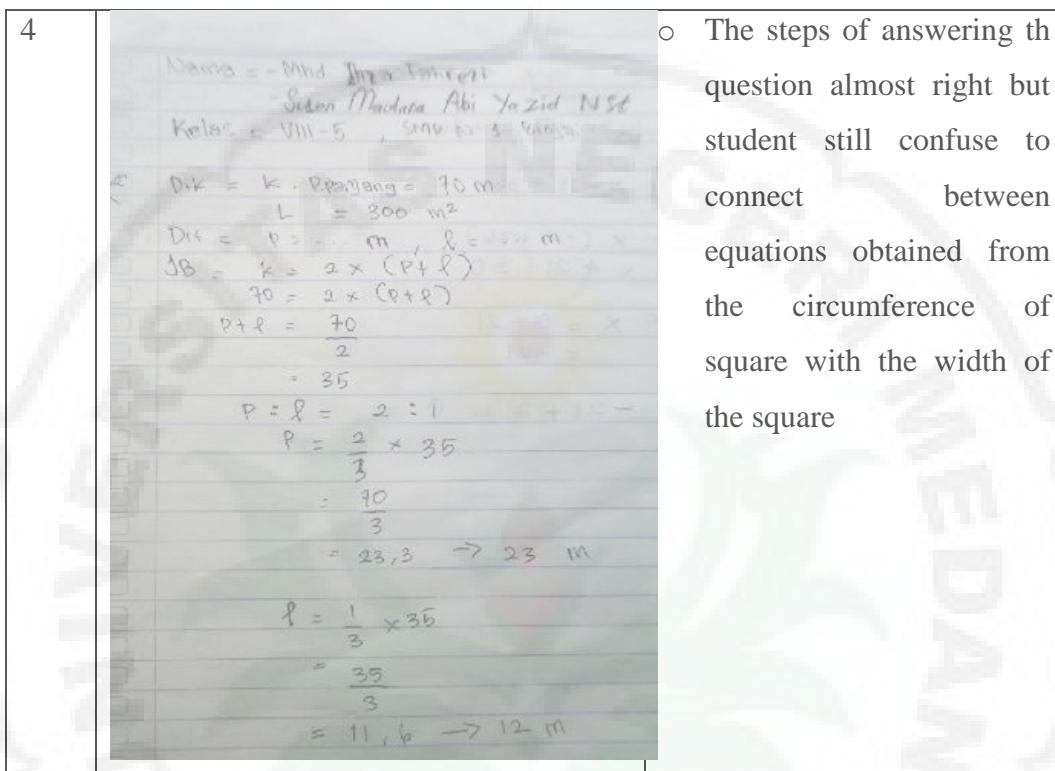 4
Nama = - Mhd
Abi Yazid NSt
Kelas = VIII-5 , SMP N 1
Dik = K . P.panjang = 70 m
L = 300 m²
Dit = P = ... m , ℓ = ... m
JB = K = 2 × (P+ℓ)
70 = 2 × (P+ℓ)
P+ℓ = 70/2
= 35
P : ℓ = 2 : 1
P = 2/3 × 35
= 70/3
= 23,3 → 23 m
ℓ = 1/3 × 35
= 35/3
= 11,6 → 12 m
o The steps of answering th
question almost right but
student still confuse to
connect between
equations obtained from
the circumference of
square with the width of
the square